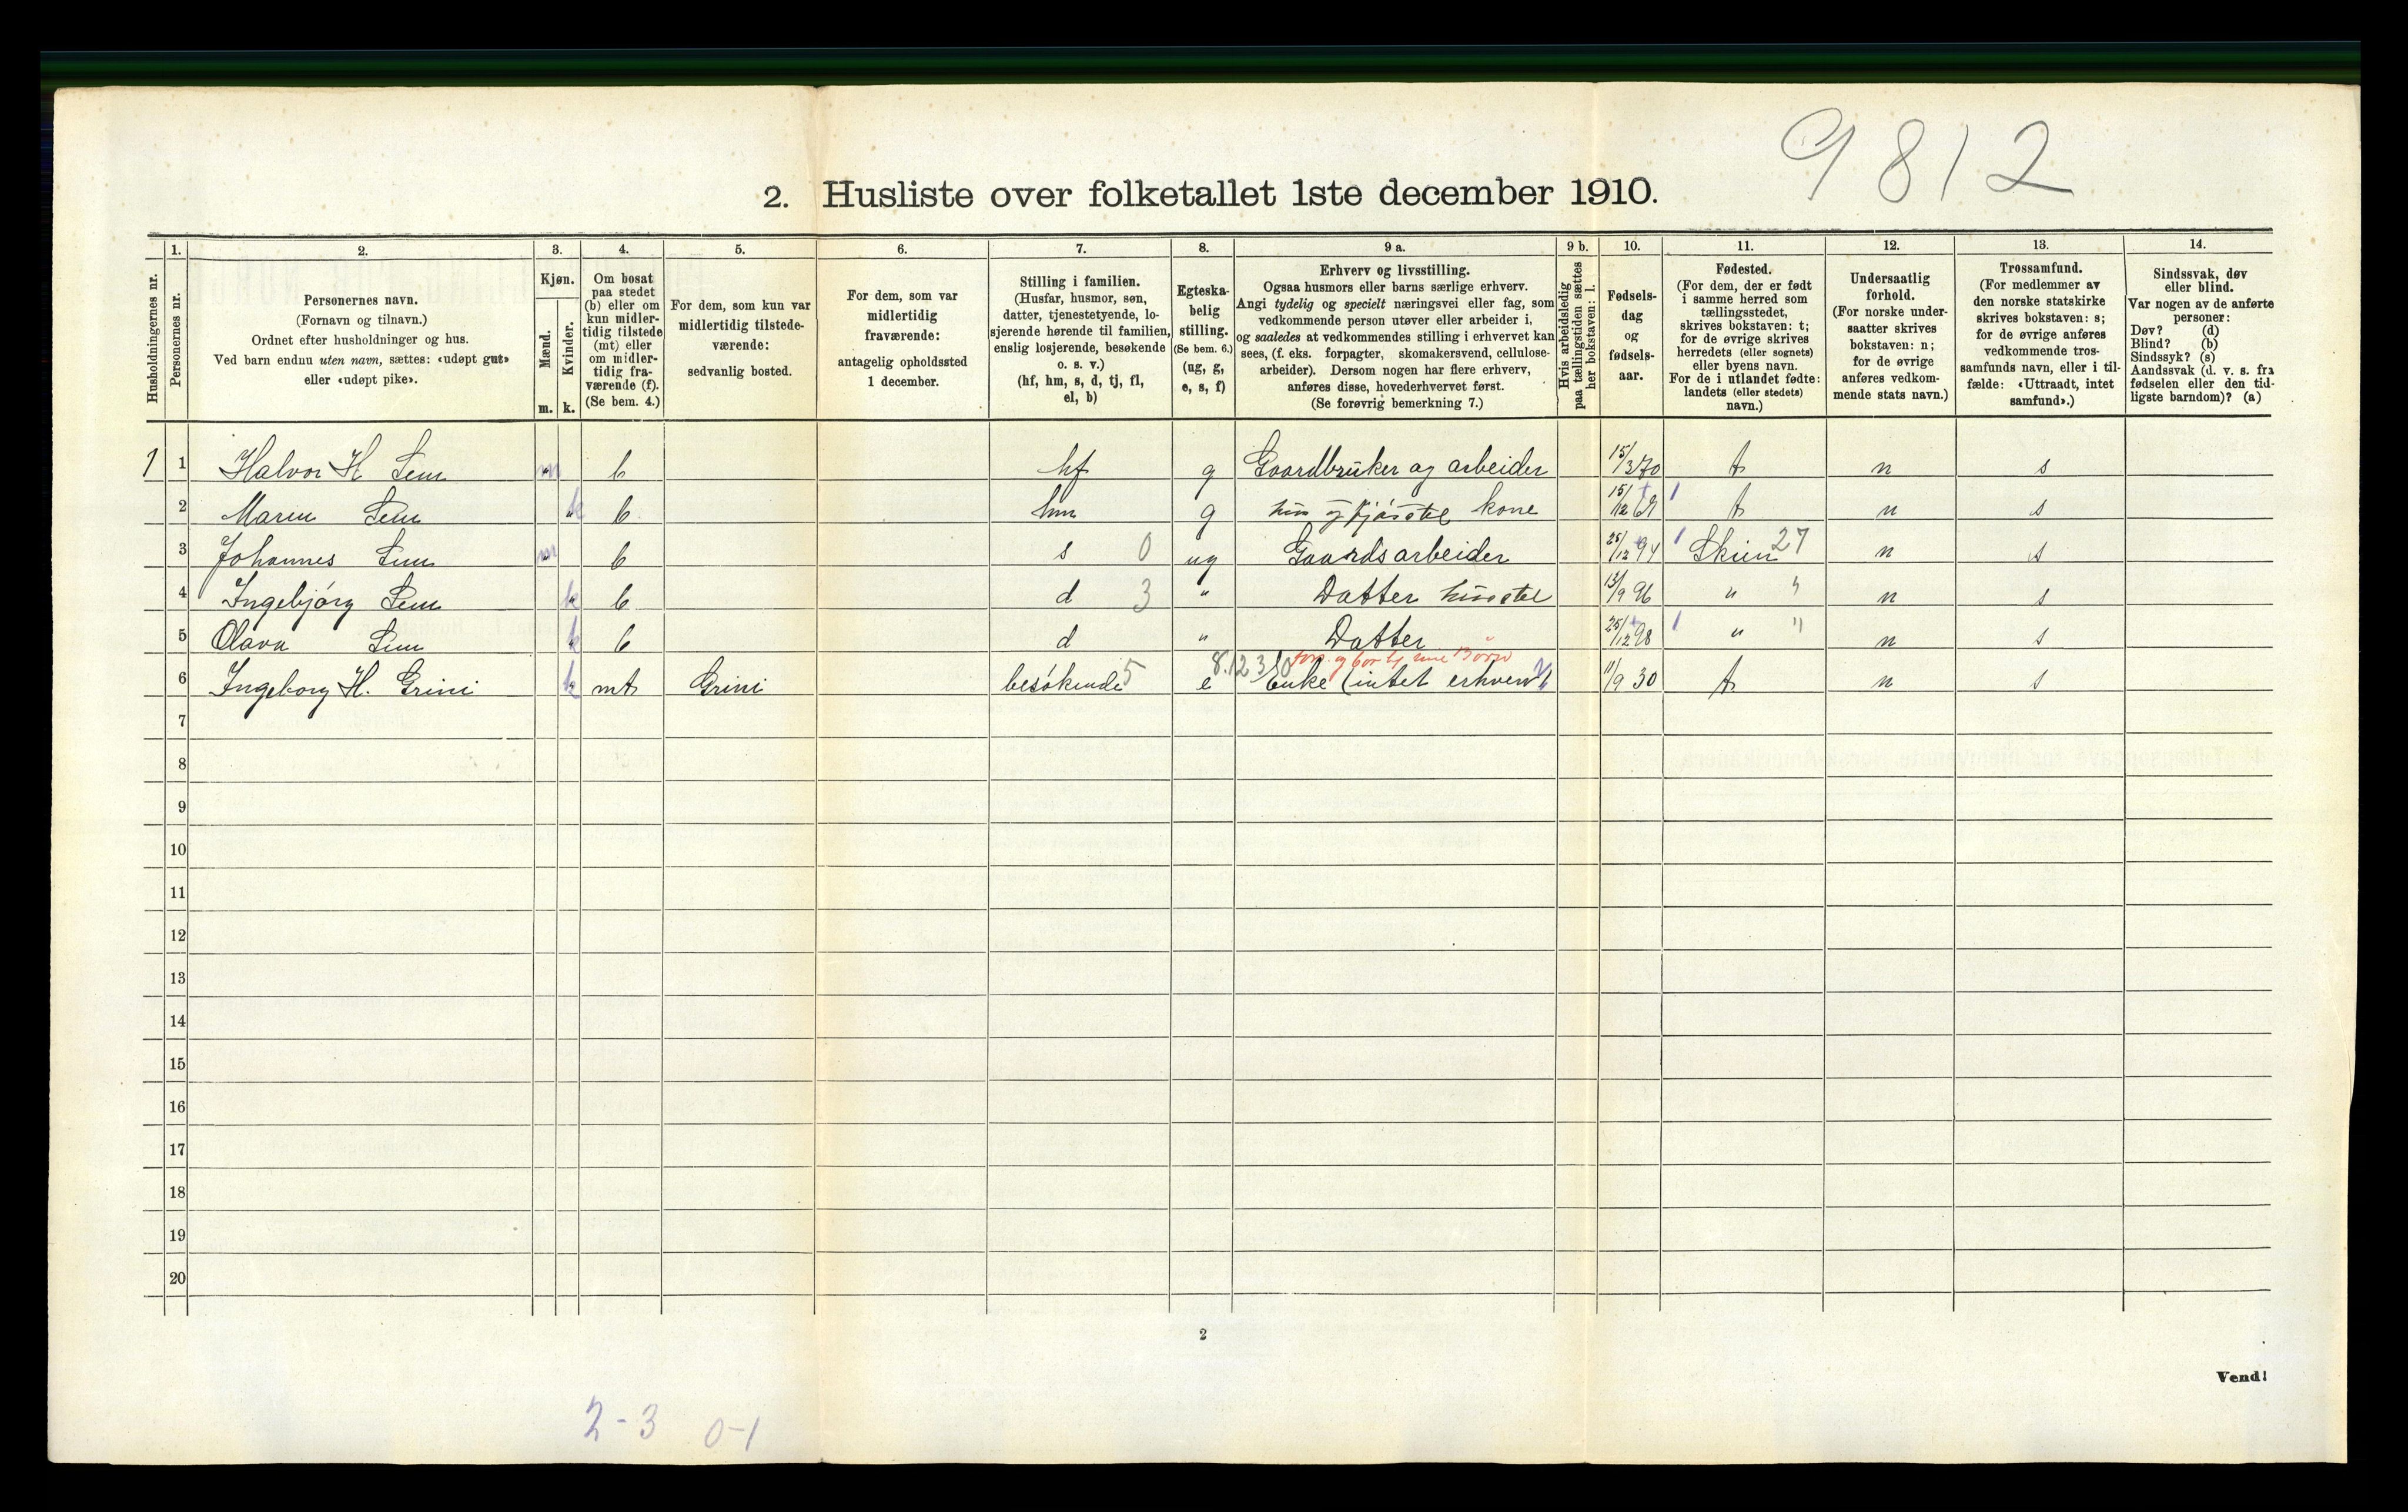 9812
2. Husliste over folketallet 1ste december 1910.
Husholdningernes nr.
1.
Personernes nr.
2.
Personernes navn.
(Fornavn og tilnavn.)
Ordnet efter husholdninger og hus.
Ved barn endnu uten navn, sættes: «udøpt gut»
eller «udøpt pike».
3.
Kjøn.
Mænd.
Kvinder.
m. k.
4.
Om bosat
paa stedet
(b) eller om
kun midler-
tidig tilstede
(mt) eller
om midler-
tidig fra-
værende (f).
(Se bem. 4.)
5.
For dem, som kun var
midlertidig tilstede-
værende:
sedvanlig bosted.
6.
For dem, som var
midlertidig
fraværende:
antagelig opholdssted
1 december.
7.
Stilling i familien.
(Husfar, husmor, søn,
datter, tjenestetyende, lo-
sjerende hørende til familien,
enslig losjerende, besøkende
o. s. v.)
(hf, hm, s, d, tj, fl,
el, b)
8.
Egteska-
belig
stilling.
(Se bem. 6.)
(ug, g,
e, s, f)
9 a.
Erhverv og livsstilling.
Ogsaa husmors eller barns særlige erhverv.
Angi tydelig og specielt næringsvei eller fag, som
vedkommende person utøver eller arbeider i,
og saaledes at vedkommendes stilling i erhvervet kan
sees, (f. eks. forpagter, skomakersvend, cellulose-
arbeider). Dersom nogen har flere erhverv,
anføres disse, hovederhvervet først.
(Se forøvrig bemerkning 7.)
9 b.
Hvis arbeidsledig
paa tællingstiden sættes
her bokstaven: l.
10.
Fødsels-
dag
og
fødsels-
aar.
11.
Fødested.
(For dem, der er født
i samme herred som
tællingsstedet,
skrives bokstaven: t;
for de øvrige skrives
herredets (eller sognets)
eller byens navn.
For de i utlandet fødte:
landets (eller stedets)
navn.)
12.
Undersaatlig
forhold.
(For norske under-
saatter skrives
bokstaven: n;
for de øvrige
anføres vedkom-
mende stats navn.)
13.
Trossamfund.
(For medlemmer av
den norske statskirke
skrives bokstaven: s;
for de øvrige anføres
vedkommende tros-
samfunds navn, eller i til-
fælde: «Uttraadt, intet
samfund».)
14.
Sindssvak, døv
eller blind.
Var nogen av de anførte
personer:
Døv? (d)
Blind? (b)
Sindssyk? (s)
Aandssvak (d. v. s. fra
fødselen eller den tid-
ligste barndom)? (a)
1 1 Halvor H Sem m b hf g Gaardbruker og arbeider 15/3 70 t n s
2 Maren Sem k b hm g hus og fjösstel kone 15/12 69 1 t n s
3 Johannes Sem m b s 0 ug Gaardsarbeider 25/12 94 1 Skien 27 n s
4 Ingebjörg Sem k b d 3 " Datter husstel 13/9 96 " " n s
5 Olava Sem k b d " Datter 25/12 98 1 " " n s
6 Ingeborg H. Grini k mt Grini besökende 5 e 8.12 3 Enke (intet erhverv) 11/9 30 t n s
7
8
9
10
11
12
13
14
15
16
17
18
19
20
2
Vend!
2-3 0-1